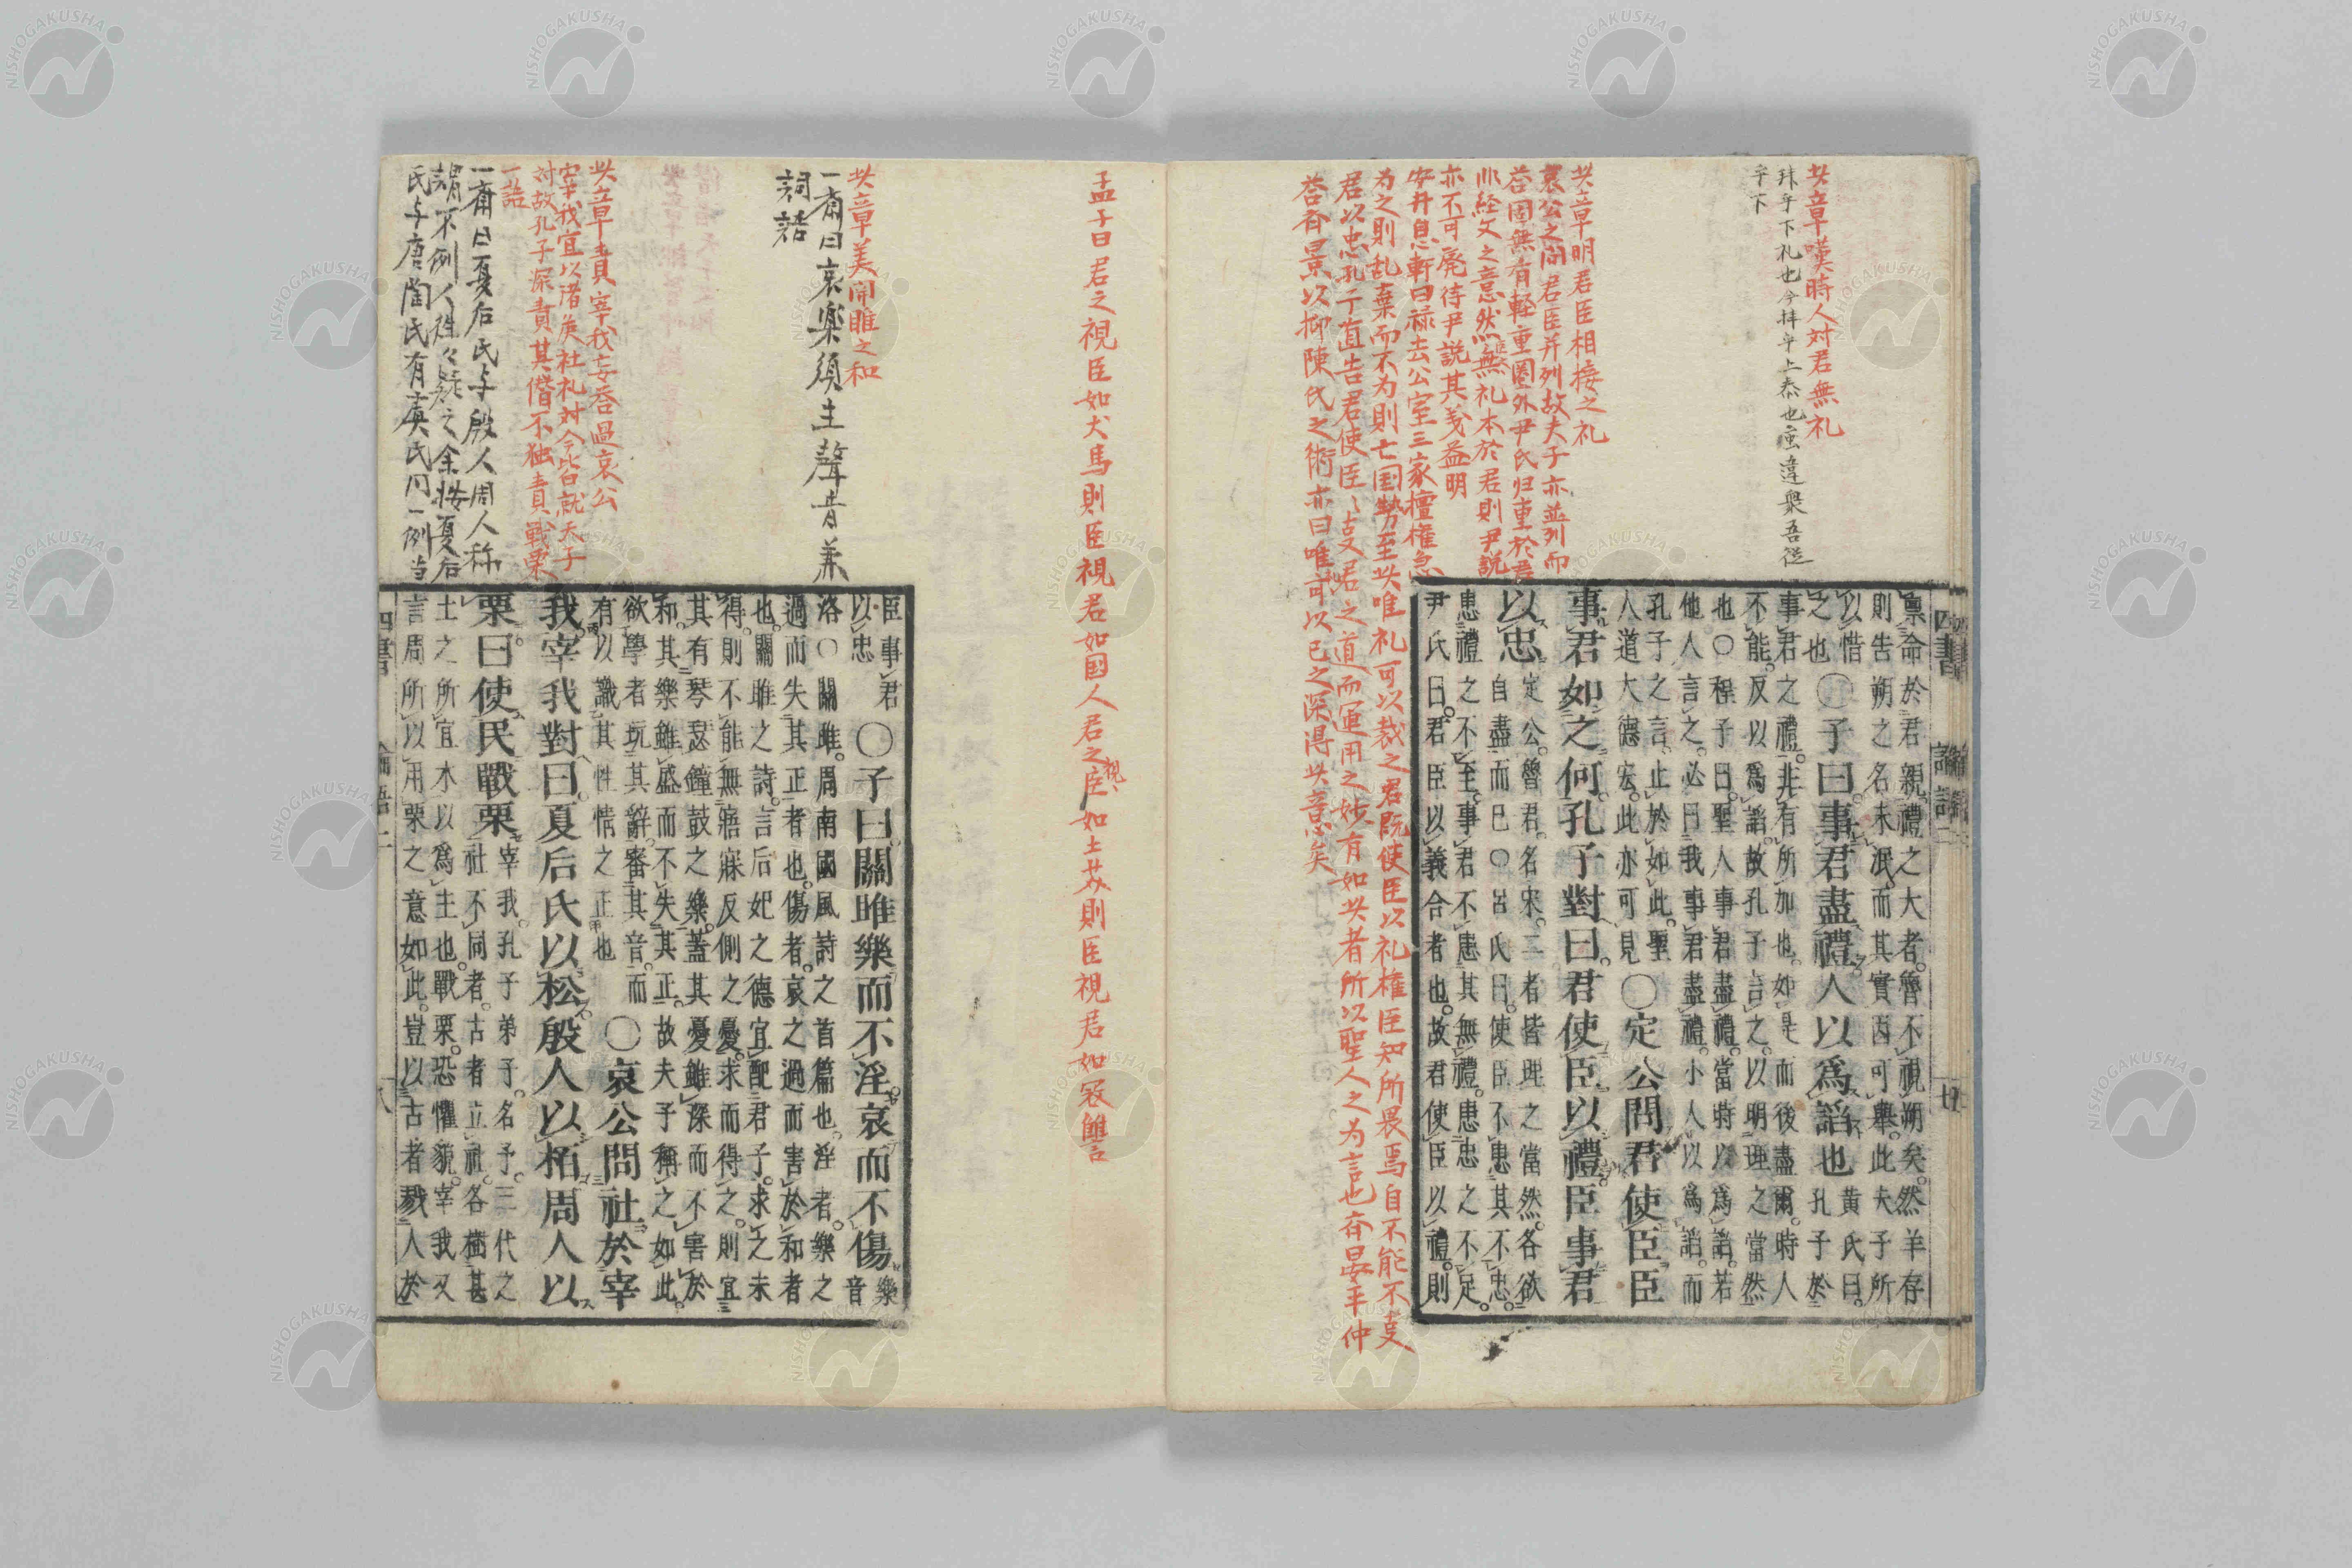 此章嘆時人対君無礼
拝乎下礼也今拝乎上泰也雖違衆吾從
乎下
此章明君臣相接之礼
哀公之問君臣并列故夫子亦並列而
答固無有軽重圏外尹氏归重於君
非経文之意然無礼本於君則尹説
亦不可廃待尹説其義益明
安井息軒曰禄去公室三家擅権急
為之則乱棄而不为則亡国勢至此唯礼可以裁之君既使臣以礼権臣知所畏焉自不能不
君以忠孔子直告君使臣事君之道而運用之妙有如此者所以聖人之为言也斉晏平仲
答斉景以抑陳氏之術亦曰唯礼可以已之深得此意矣
稟命於君親禮之大者魯不視朔矣然羊存
則告朔之名未泯而其實因可舉此夫子所
以惜
之也〇子曰事君盡禮人以爲諂也
黄氏曰
孔子於
事君之禮非有所加也如是而後盡爾時人
不能反以爲諂故孔子言之以明理之當然
也〇程子曰聖人事君盡禮當時以爲諂若
他人言之必曰我事君盡禮小人以爲諂而
孔子之言止於如此聖
人道大德宏此亦可見
〇定公問君使臣臣
事君如之何孔子對曰君使臣以禮臣事君
以忠
定公魯君名宋二者皆理之當然各欲
自盡而已〇呂氏曰使臣不患其不忠
患禮之不至事君不患其無禮患忠之不足
尹氏曰君臣以義合者也故君使臣以禮則
四書
論語二
孟子曰君之視臣如犬馬則臣視君如国人君之視臣如土芥則臣視君如寇讎
此章美関雎之和
一斎曰哀楽須主聲音兼
詞話
此章責宰我妄答過哀公
宰我宜以諸侯社礼対今皆就天子
対故孔子深責其僭不独責戦栗
一語
一斎曰夏后氏与殷人周人称
謂不例人徃々疑之余按夏后
氏与唐陶氏有虞氏同一例当
臣事君
以忠
〇子曰關雎樂而不淫哀而不傷
樂
音
洛〇關雎周南國風詩之首篇也淫者樂之
過而失其正者也傷者哀之過而害於和者
也關雎之詩言后妃之德宜配君子求之未
得則不能無寤寐反側之憂求而得之則宜
其有琴瑟鐘鼓之樂蓋其憂雖深而不害於
和其樂雖盛而不失其正故夫子稱之如此
欲學者玩其辭審其音而
有以識其性情之正也
〇哀公問社於宰
我宰我對曰夏后氏以松殷人以栢周人以
栗曰使民戰栗
宰我孔子弟子名予三代之
社不同者古者立社各樹其
土之所宜木以爲主也戰栗恐懼貌宰我又
言周所以用栗之意如此豈以古者戮人於
四書
論語二
八